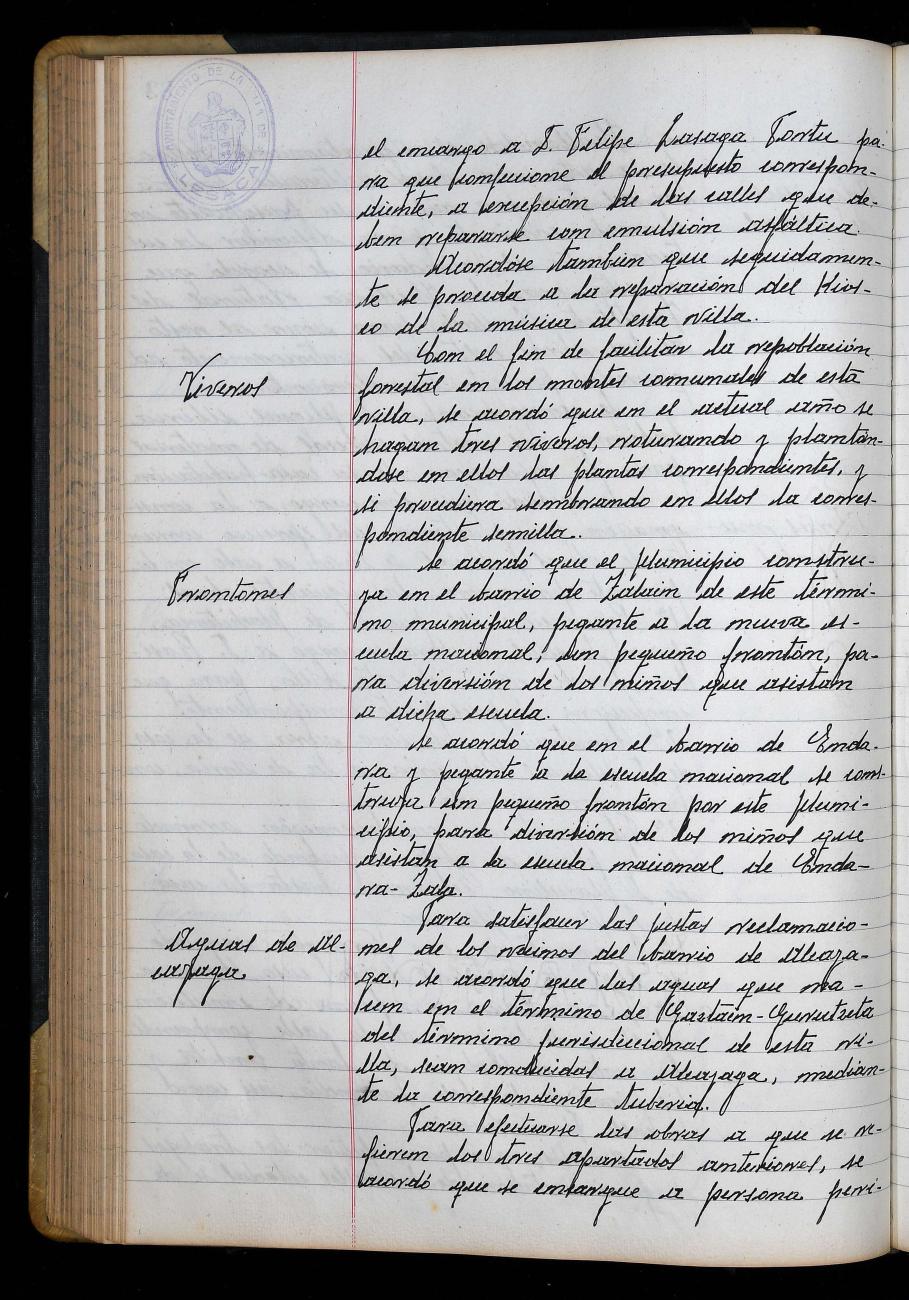 AYUNTAMIENTO DE LA VILLA DE
LESACA
el encargo a D. Felipe Lasaga Tortu pa-
ra que confeccione el presupuesto correspon-
diente, a excepción de las calles que de-
ben repararse con emulsión asfáltica.
Acordóse tambien que seguidamen-
te se proceda a la reparación del Kios-
co de la música de esta villa.
Viveros
Con el fin de facilitar la repoblación
forestal en los montes comunales de esta
villa, se acordó que en el actual año se
hagan tres viveros, roturando y plantán-
dose en ellos las plantas correspondientes, y
si procediera sembrando en ellos la corres-
pondiente semilla.
Frontones
Se acordó que el Municipio constru-
ya en el barrio de Zalain de este térmi-
no municipal, pegante a la nueva es-
cuela nacional, un pequeño frontón, pa-
ra diversión de los niños que asistan
a dicha escuela.
Se acordó que en el barrio de Enda-
ra y pegante a la escuela nacional se cons-
truya un pequeño frontón por este Muni-
cipio, para diversión de los niños que
asistan a la escuela nacional de Enda-
ra-Zala.
Aguas de Al-
cayaga
Para satisfacer las justas reclamacio-
nes de los vecinos del barrio de Alcaya-
ga, se acordó que las aguas que na-
cen en el término de Gaztain-Gurutzeta
del término jurisdiccional de esta vi-
lla, sean conducidas a Alcayaga, median-
te la correspondiente tuberia.
Para efectuarse las obras a que se re-
fieren los tres apartados anteriores, se
acordó que se encargue a persona peri-